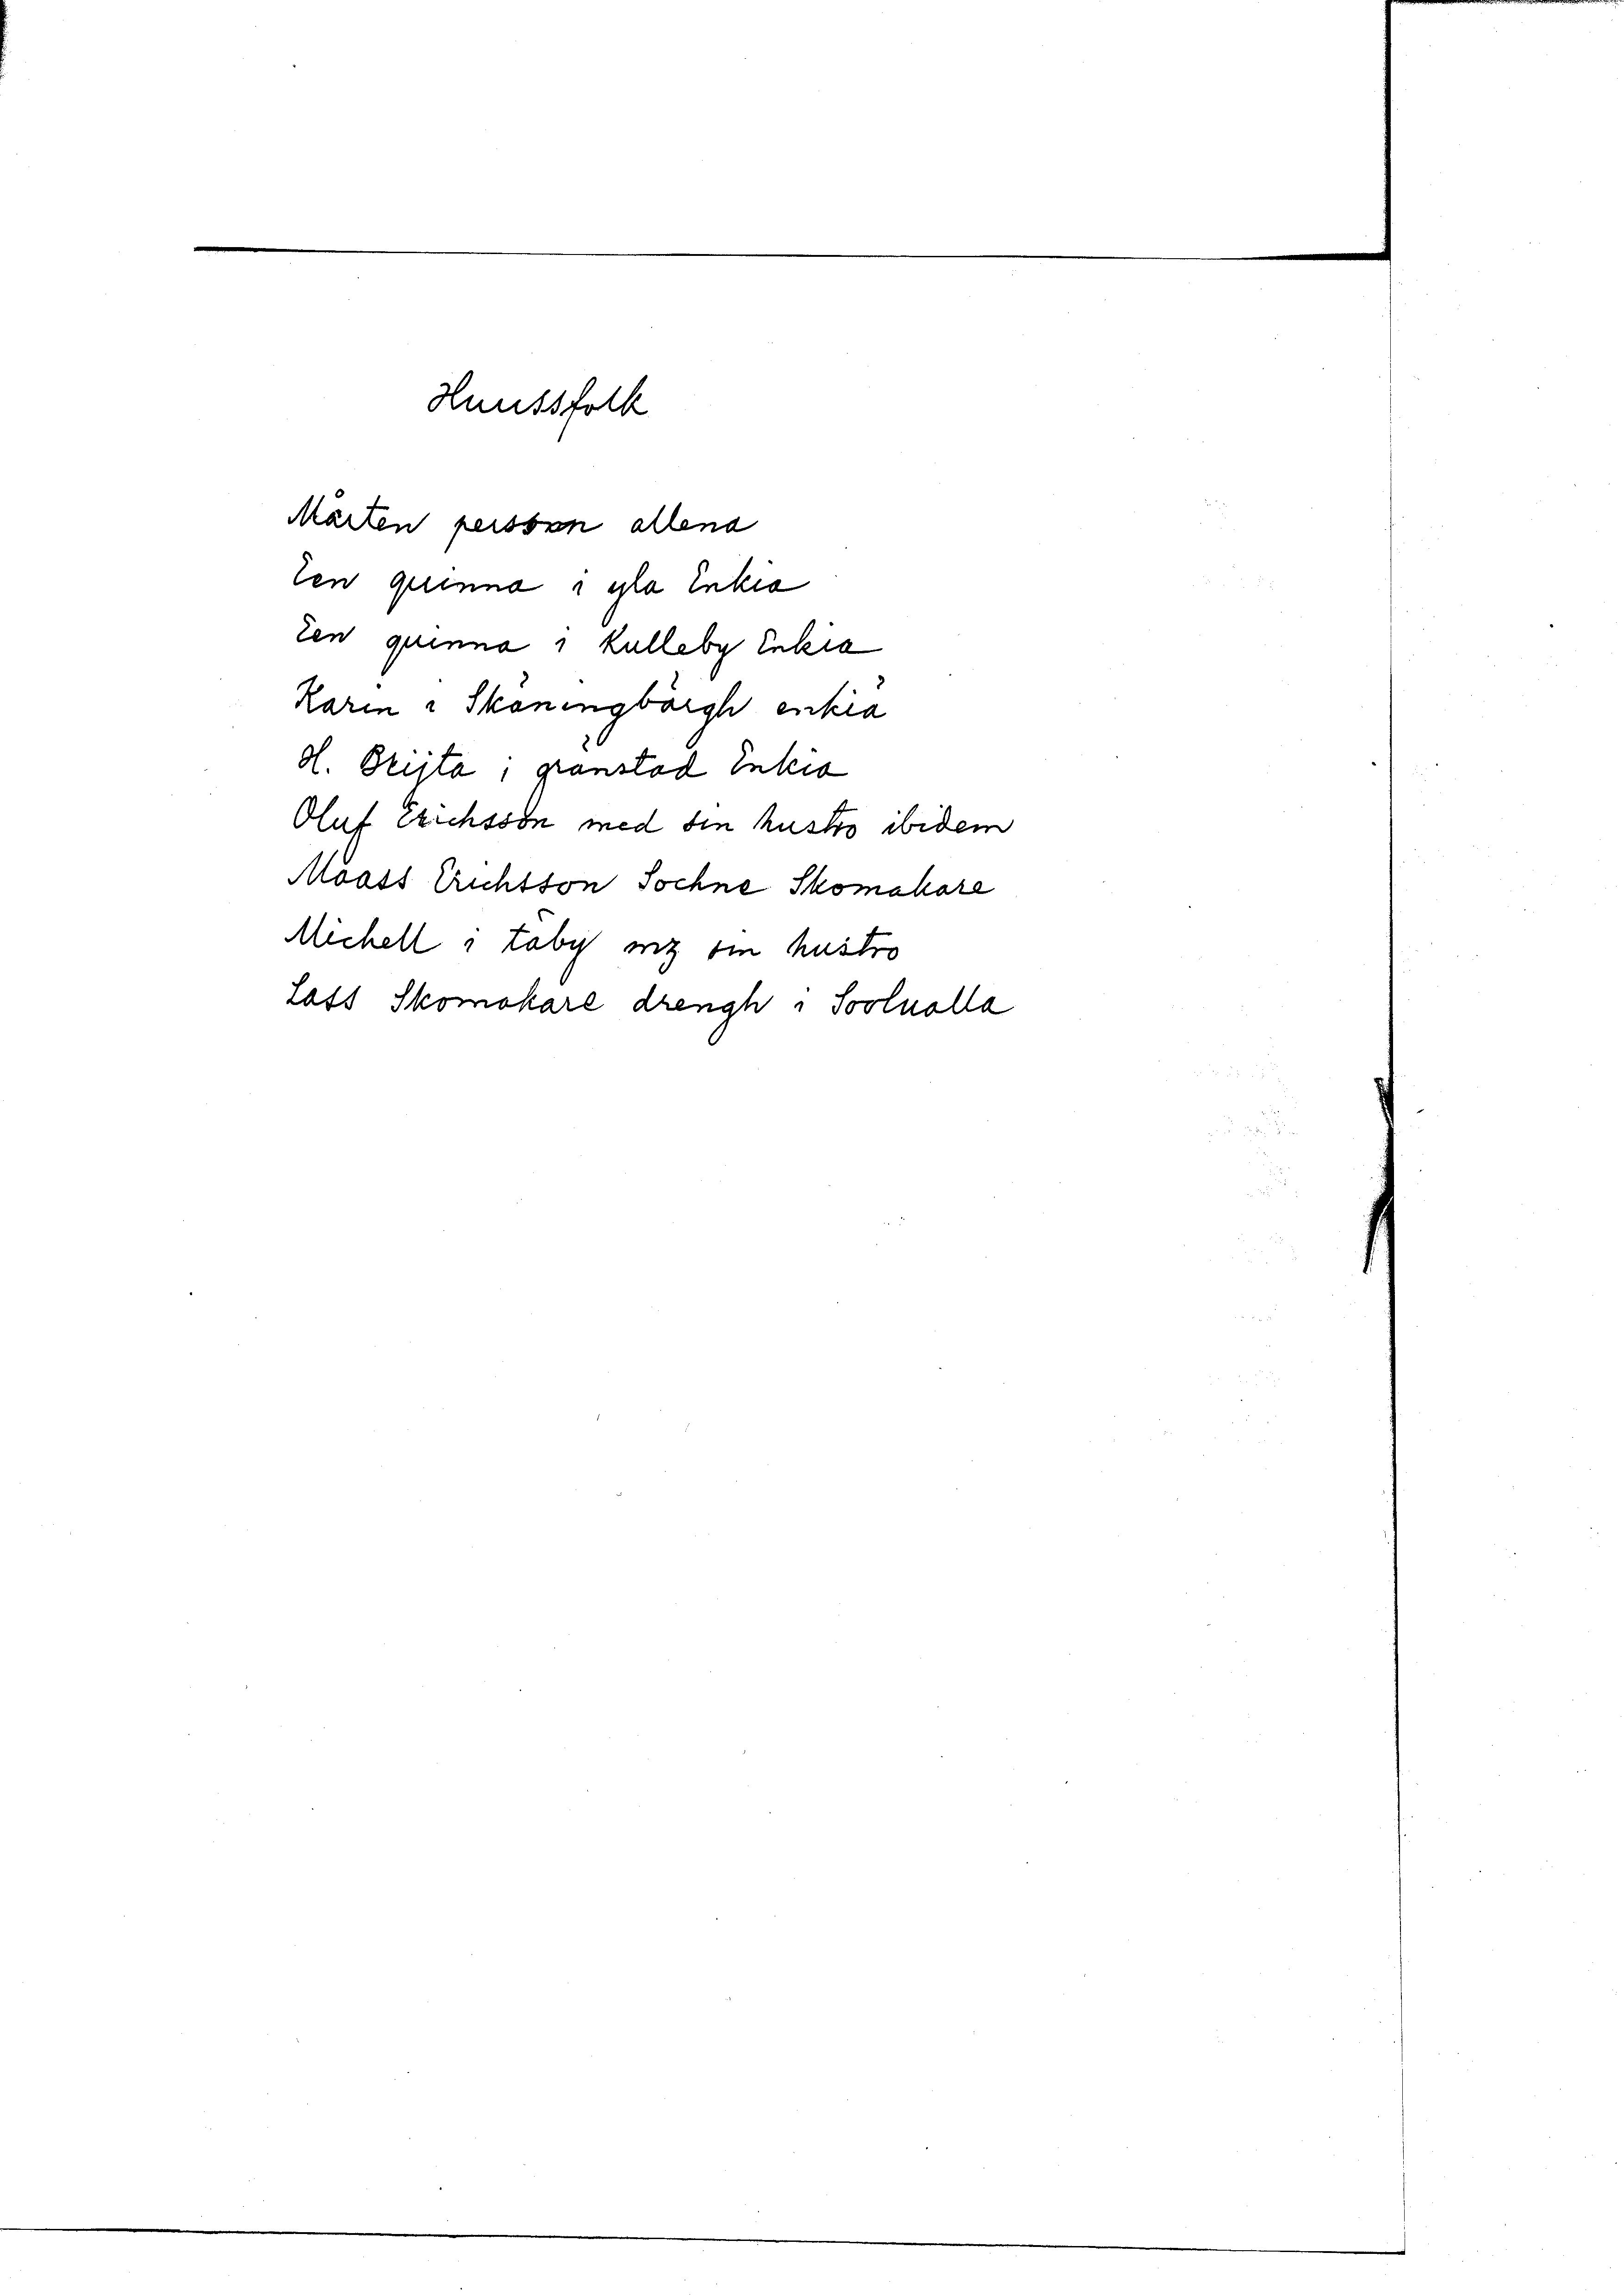 Huussfolk
Mårten persson allena
Een quinna i yla Enkia
Een quinna i kulleby Enkia
Karin i Skäningbärgh enkia
H. Brijta i gränstad Enkia
Oluf Erichsson med sin hustro ibidem
Maass Erichsson Sochne Skomakare
Michell i täby mz sin hustro
Lass Skomakare drengh i Soolualla